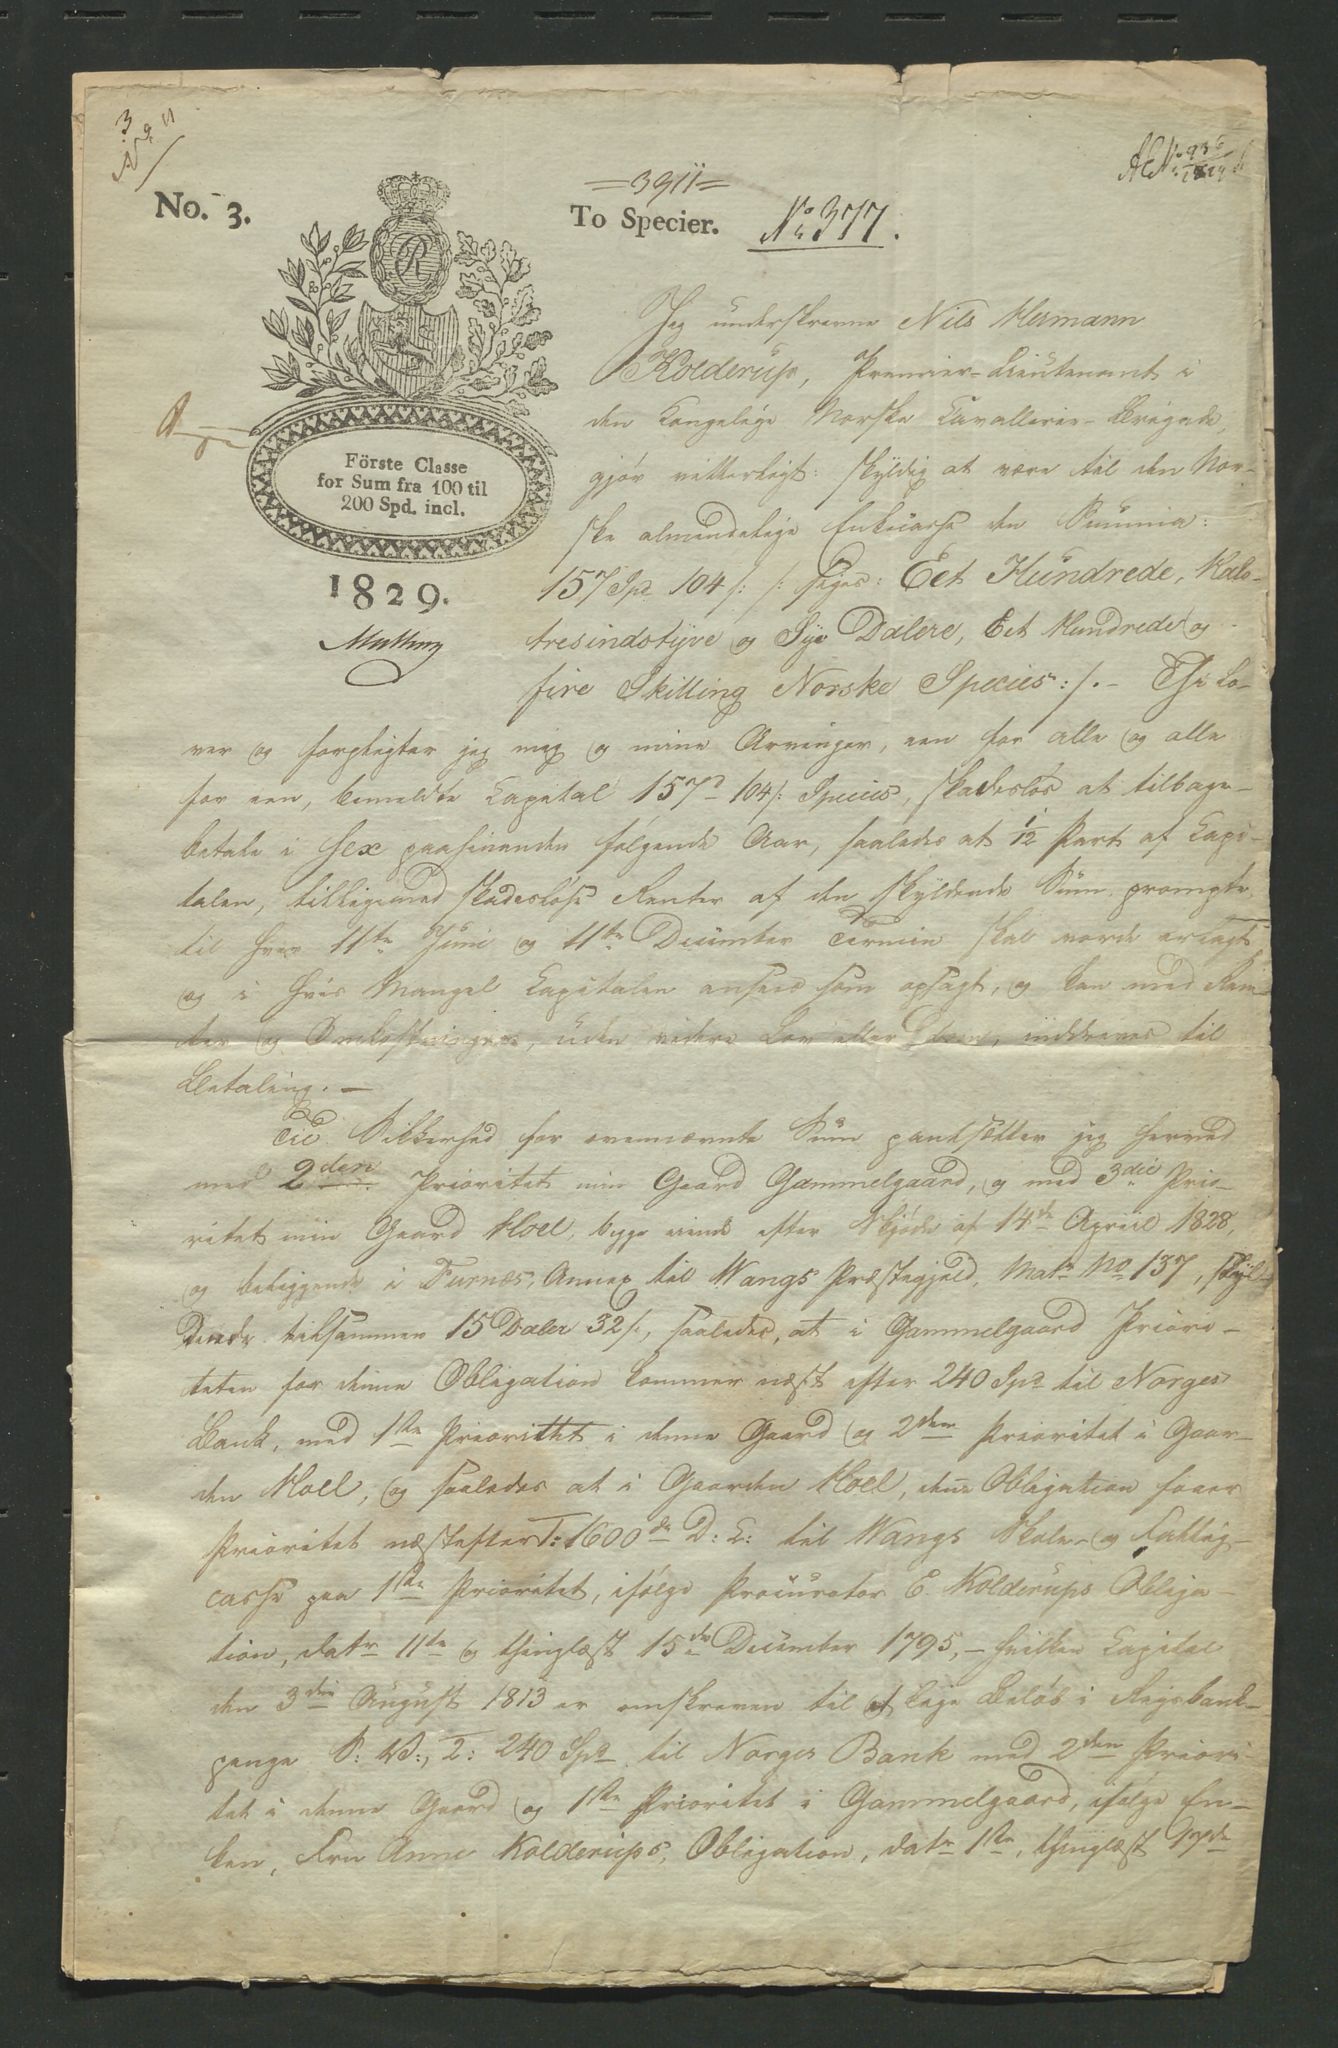 3
No. 3.
=3911=
To Specier.
No 377.
R
Förste Classe
for Sum fra 100 til
200 Spd. incl.
1829.
Jeg underskrevne Nils Hermann
Kolderup, Premier-Lieutenant i
den Kongelige Norske Cavallerie-Brigade,
gjör vitterligt: skyldig at være til den Nor-
ske almindelige Enkecasse den Summa:
157 Spd 104 /: /: siger: Eet Hundrede, Halv-
tresindstyve og Syv Dalere, Eet Hundrede og
fire Skilling Norske Species :/. - Thi lo-
ver og forpligter jeg mig og mine Arvinger, een for alle og alle
for een, bemeldte Capital 157d 104 /: Species, skadeslös at tilbage-
betale i Sex paahinanden fölgende Aar, saaledes at 1/12 Part af Capi-
talen, tilligemed skadeslöse Renter af den skyldende Sum, prompte
til hver 11te Juni og 11te December Termin skal vorde erlagt
og i hvis Mangel Capitalen ansees som opsagt, og kan med Ren-
ter og Omkostninger, uden videre Lov eller Dom, inddrives til
Betaling. -
Til Sikkerhed for ovennævnte Sum pantsætter jeg herved
med 2den Prioritet min Gaard Gammelgaard, og med 3die Prio-
ritet min Gaard Hoel, begge eiende efter Skjöde af 14de April 1828,
og beliggende i Furnæs, Annex til Wangs Præstegjeld, Matr No 137, skyl-
dende tilsammen 15 Daler 32 /:, saaledes, at i Gammelgaard Priori-
teten for denne Obligation kommer næst efter 240 Spd til Norges
Bank, med 1ste Prioritet i denne Gaard og 2den Prioritet i Gaar-
den Hoel, og saaledes at i Gaarden Hoel, denne Obligation faaer
Prioritet næstefter 1: 1600 dr D: C: til Wangs Skole- og Fattig-
casse paa 1ste Prioritet, ifölge Procurator E. Kolderups Obliga
tion, datr 11te og thinglæst 15de December 1795, - hvilken Capital
den 3die August 1813 er omskreven til et lige Belöb i Rigsbank-
penge S: V:, 2: 240 Spd til Norges Bank med 2den Priori-
tet i denne Gaard og 1ste Prioritet i Gammelgaard, ifölge En-
ken, Fru Anne Kolderups, Obligation, datr 1ste, thinglæst 17de